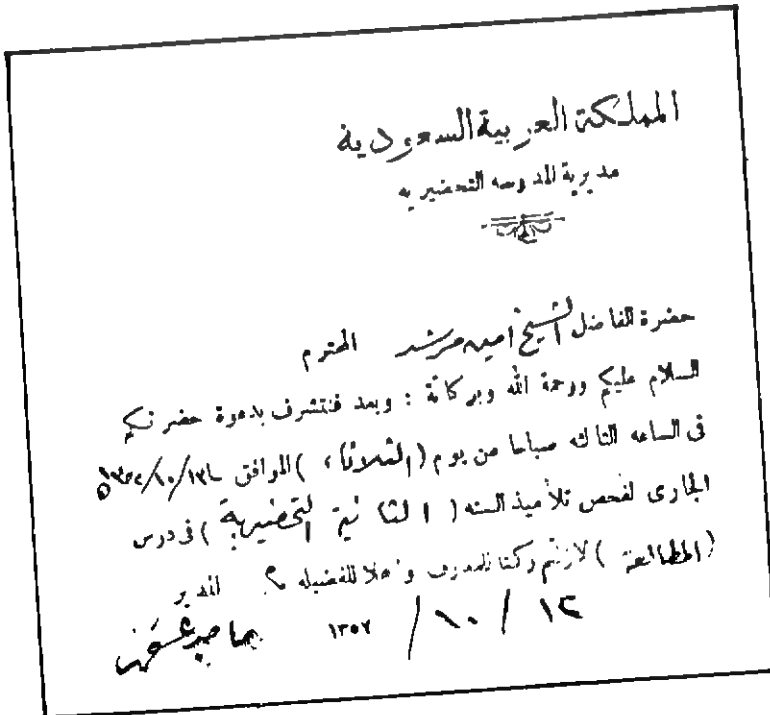 المملكة العربية السعودية
مديرية المدرسه التحضيريه
حضرة الفاضل الشيخ أمين مرشد المحترم
السلام عليكم ورحمة الله وبركاتة : وبعد فنتشرف بدعوة حضرتكم
فى الساعه الثالثه صباحا من يوم (الثلاثاء) الموافق
الجارى لفحص تلاميذ السنه (الثانية التحضيرية) فى درس
(المطالعة) لازلتم ركنا للمعارف وأهلا للفضيله المدير
١٣٥٧ / ١٠ / ١٢